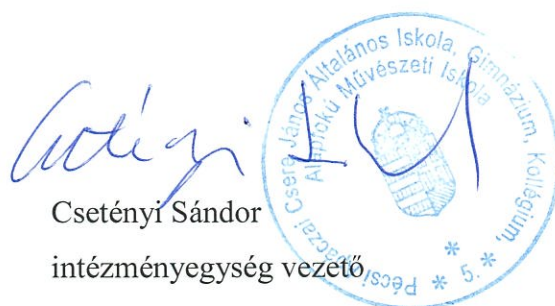 Csetényi Sándor
intézményegység vezető
Pécsi Apáczai Csere János Általános Iskola, Gimnázium, Kollégium,
Alapfokú Művészeti Iskola
* 5. *